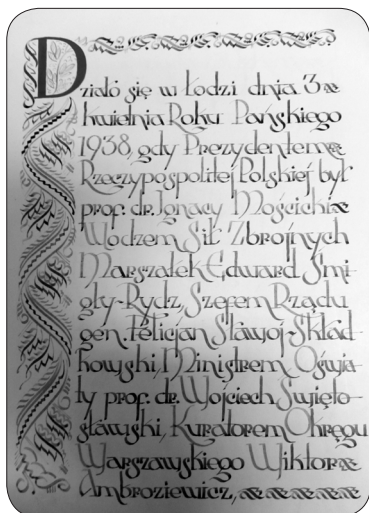 Działo się w Łodzi dnia 3
kwietnia Roku Pańskiego
1938, gdy Prezydentem
Rzeczypospolitej Polskiej był
prof. dr. Ignacy Mościcki
Wodzem Sił Zbrojnych
Marszałek Edward Śmi-
gły-Rydz, Szefem Rządu
gen. Felicjan Sławoj-Skład-
kowski, Ministrem Oświa-
ty prof. dr. Wojciech Święto-
sławski, Kuratorem Okręgu
Warszawskiego Wiktor
Ambroziewicz,